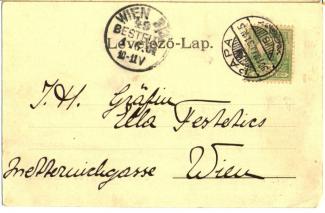 WIEN
BESTELLT
Levelező-Lap.
PÁPA
I. H. Gräfin
Ella Festetics
Metternichgasse Wien